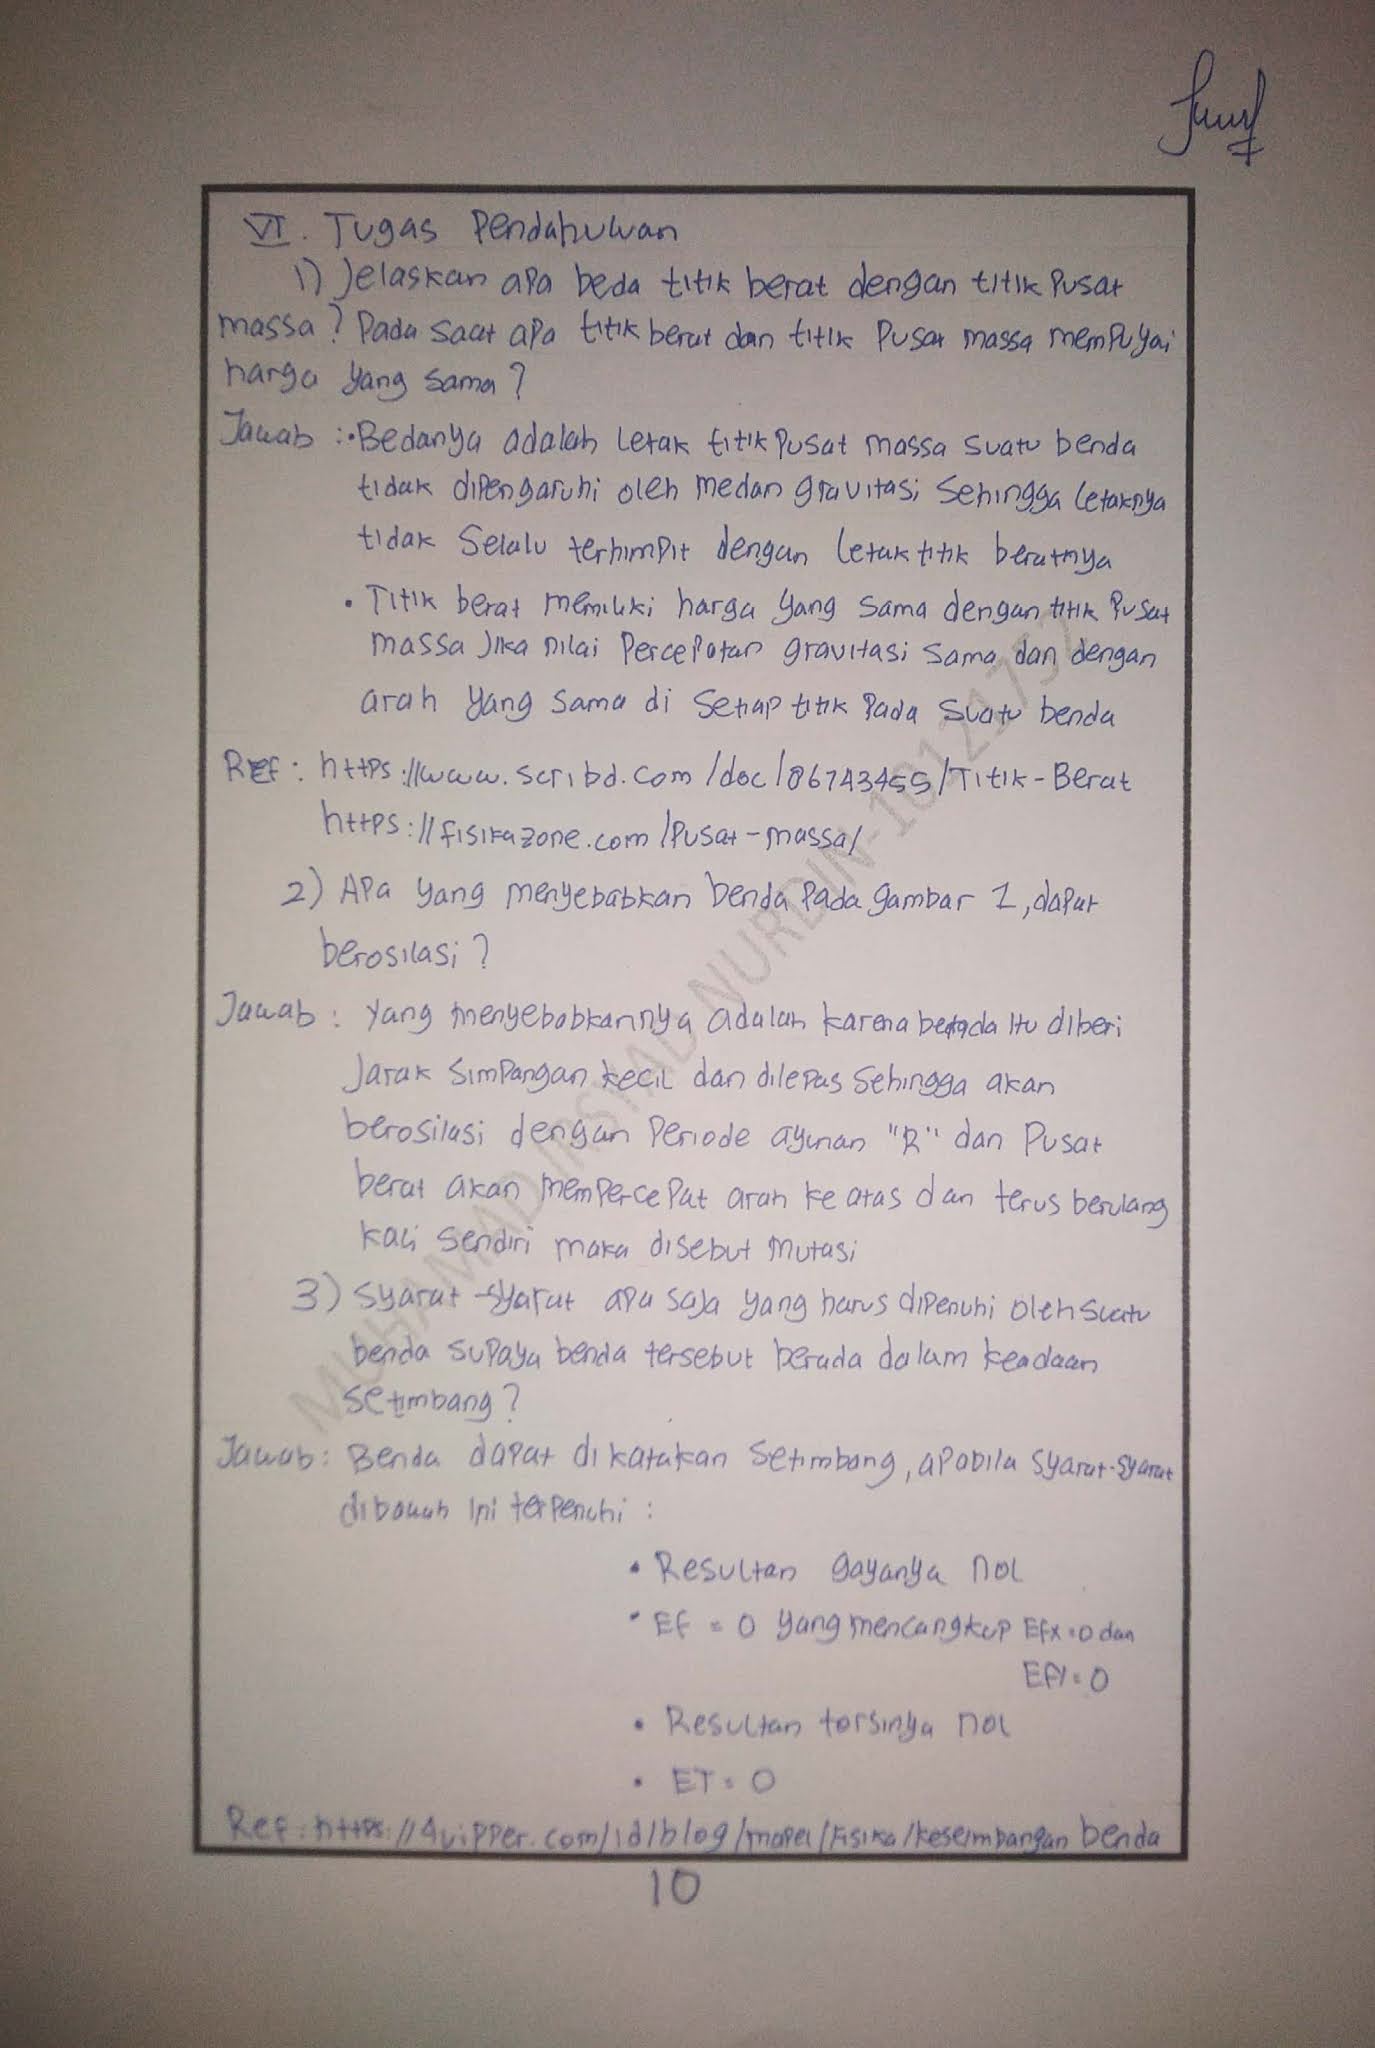 VI. Tugas Pendahuluan
1) Jelaskan apa beda titik berat dengan titik Pusat
massa? Pada saat apa titik berat dan titik Pusat massa mempuyai
harga yang sama?
Jawab : • Bedanya adalah letak titik Pusat massa suatu benda
tidak dipengaruhi oleh medan gravitasi sehingga letaknya
tidak selalu terhimpit dengan letak titik beratnya
• Titik berat memiliki harga yang sama dengan titik Pusat
massa jika nilai Percepatan gravitasi sama dan dengan
arah yang sama di setiap titik Pada suatu benda
Ref : https://www.scribd.com/doc/86743455/Titik-Berat
https://fisikazone.com/Pusat-massa/
2) Apa yang menyebabkan benda Pada gambar 1, dapat
berosilasi?
Jawab : Yang menyebabkannya adalah karena benda itu diberi
Jarak Simpangan kecil dan dilepas sehingga akan
berosilasi dengan Periode ayunan "R" dan Pusat
berat akan mempercepat arah ke atas dan terus berulang
kali sendiri maka disebut Mutasi
3) Syarat-syarat apa saja yang harus dipenuhi oleh suatu
benda supaya benda tersebut berada dalam keadaan
setimbang?
Jawab : Benda dapat dikatakan setimbang, apabila syarat-syarat
dibawah ini terpenuhi :
• Resultan gayanya nol
• EF = 0 yang mencangkup EFx = 0 dan
EFy = 0
• Resultan torsinya nol
• ET = 0
Ref : https://quipper.com/id/blog/mapel/fisika/keseimbangan benda
10
MUHAMAD IRSYAD NURDIN-10121752